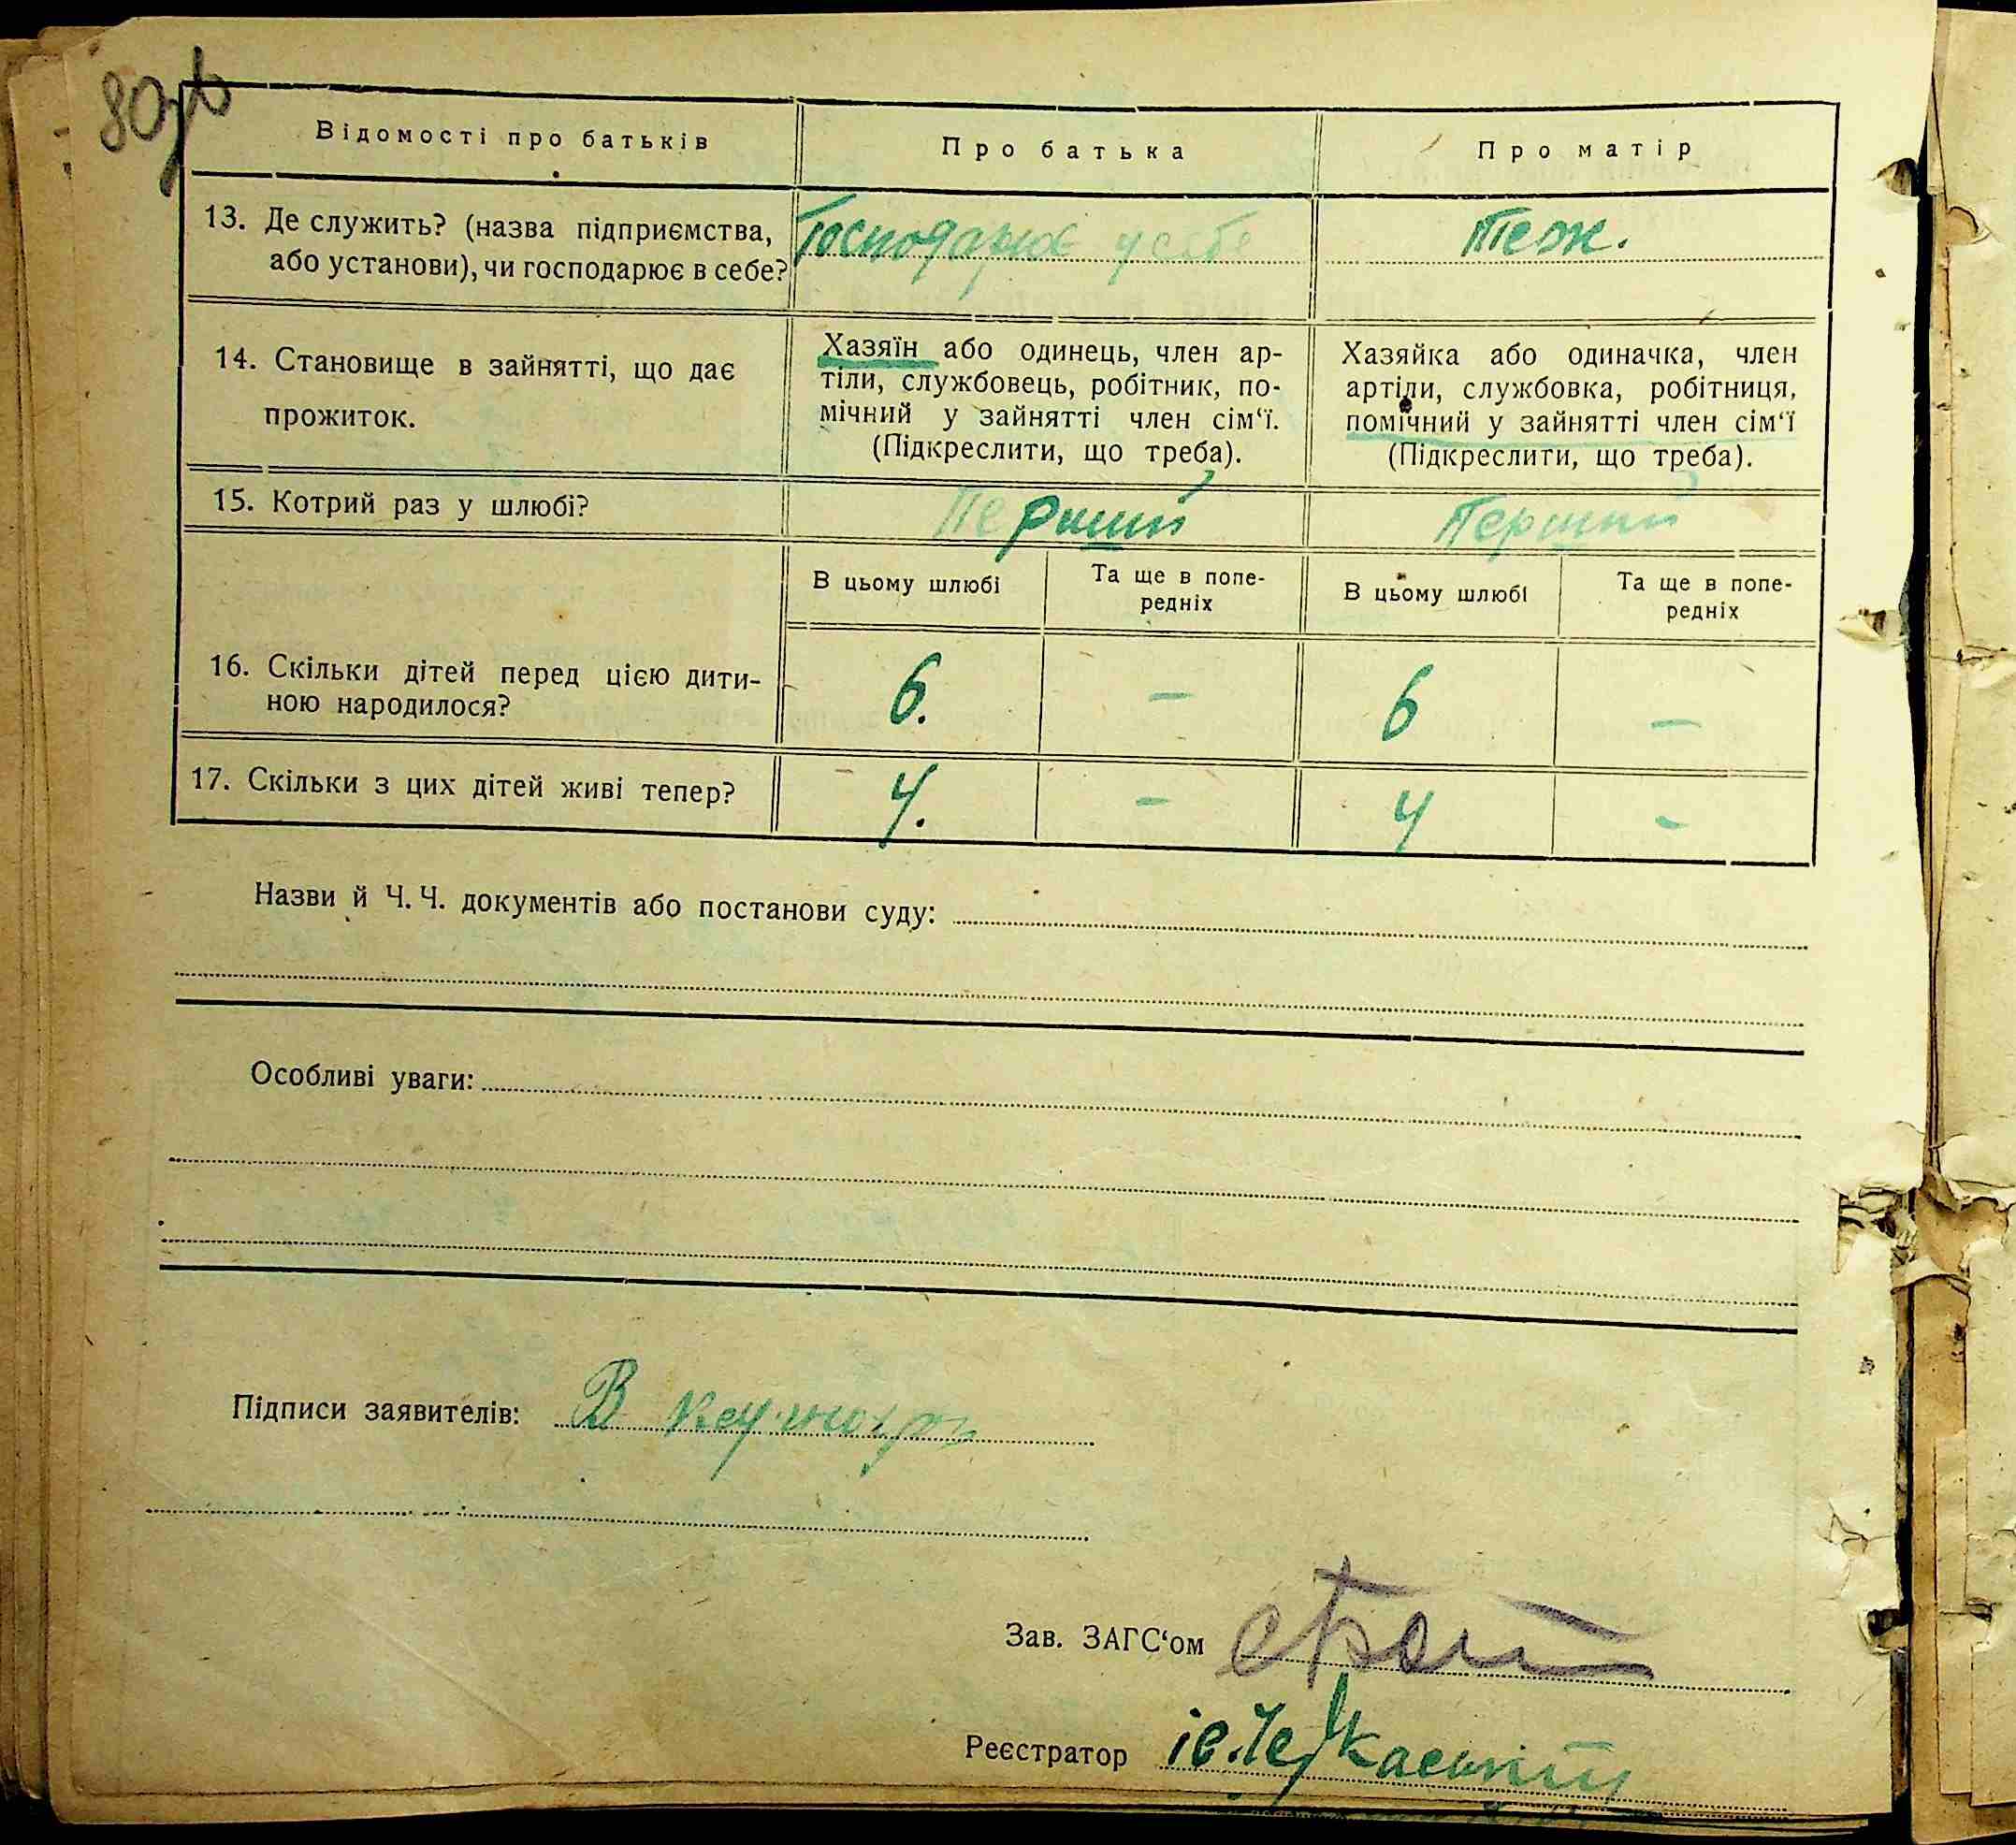 80
Відомості про батьків
Про батька
Про матір
13. Де служить? (назва підприємства,
або установи), чи господарює в себе?
Господарює у себе
Теж.
14. Становище в зайнятті, що дає
прожиток.
Хазяїн або одинець, член ар-
тіли, службовець, робітник, по-
мічний у зайнятті член сім‘ї.
(Підкреслити, що треба).
Хазяйка або одиначка, член
артіли, службовка, робітниця,
помічний у зайнятті член сім‘ї
(Підкреслити, що треба).
15. Котрий раз у шлюбі?
Перший
Перший
В цьому шлюбі
Та ще в попе-
редніх
В цьому шлюбі
Та ще в попе-
редніх
16. Скільки дітей перед цією дити-
ною народилося?
6.
–
6
–
17. Скільки з цих дітей живі тепер?
4.
–
4
–
Назви й Ч. Ч. документів або постанови суду:
Особливі уваги:
Підписи заявителів: В
Зав. ЗАГС‘ом
Реєстратор Ів. Черкаський